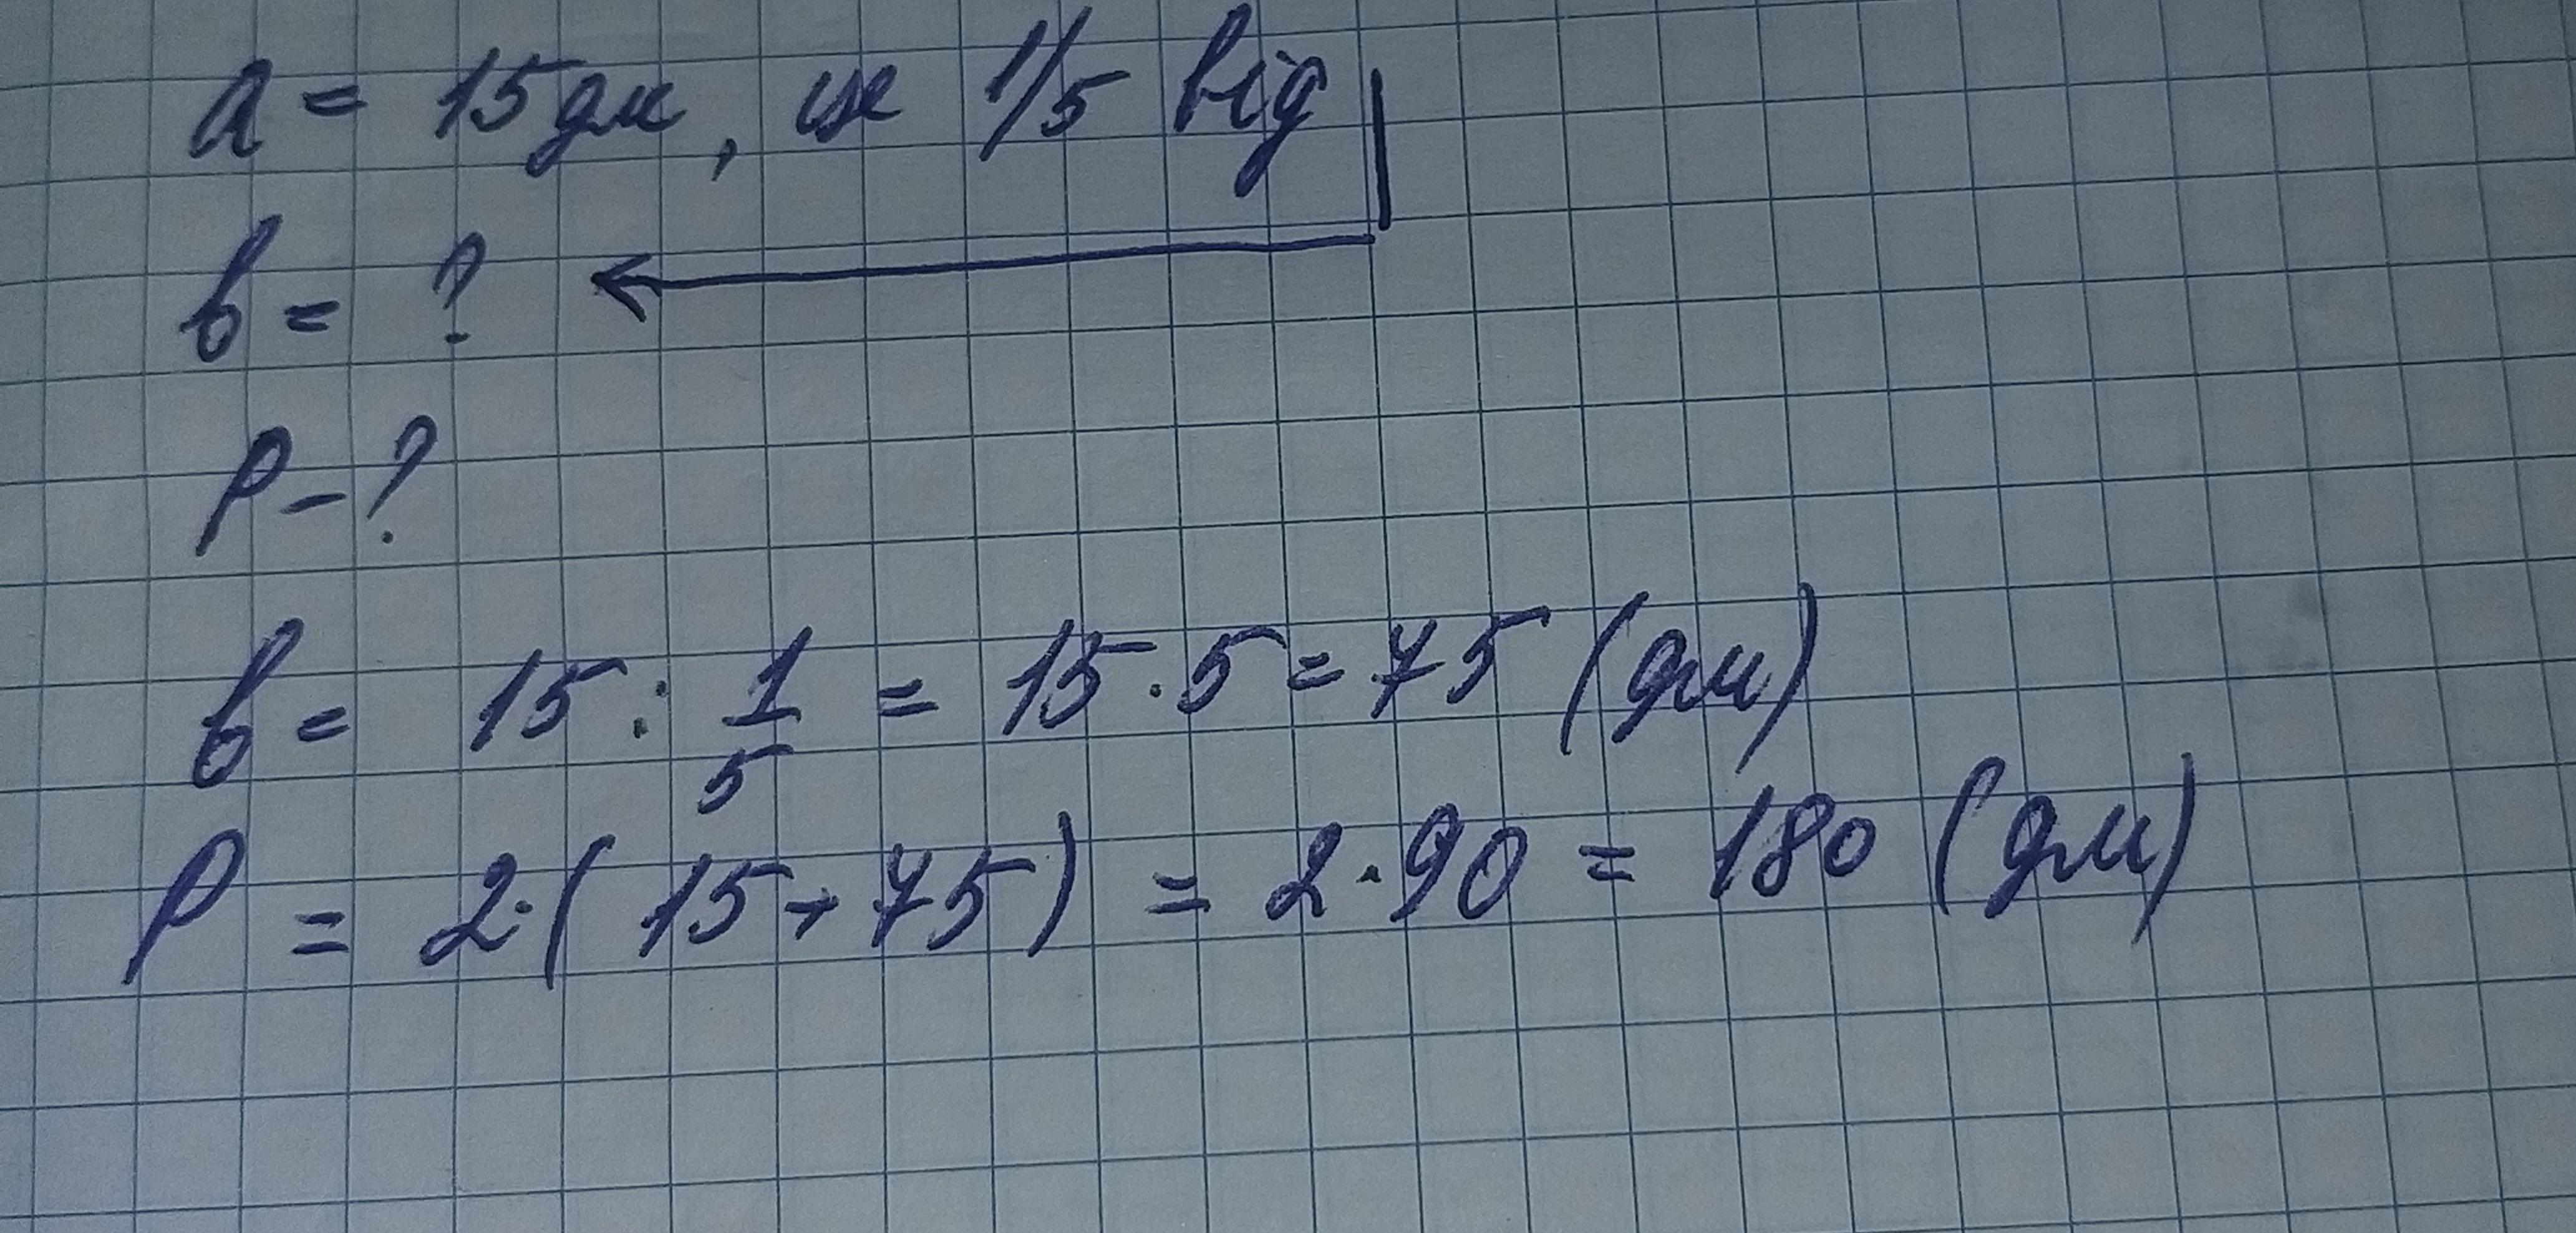 a = 15 дм, це 1/5 від
b = ?
P - ?
b = 15 : 1/5 = 15 · 5 = 75 (дм)
P = 2 · ( 15 + 75 ) = 2 · 90 = 180 (дм)